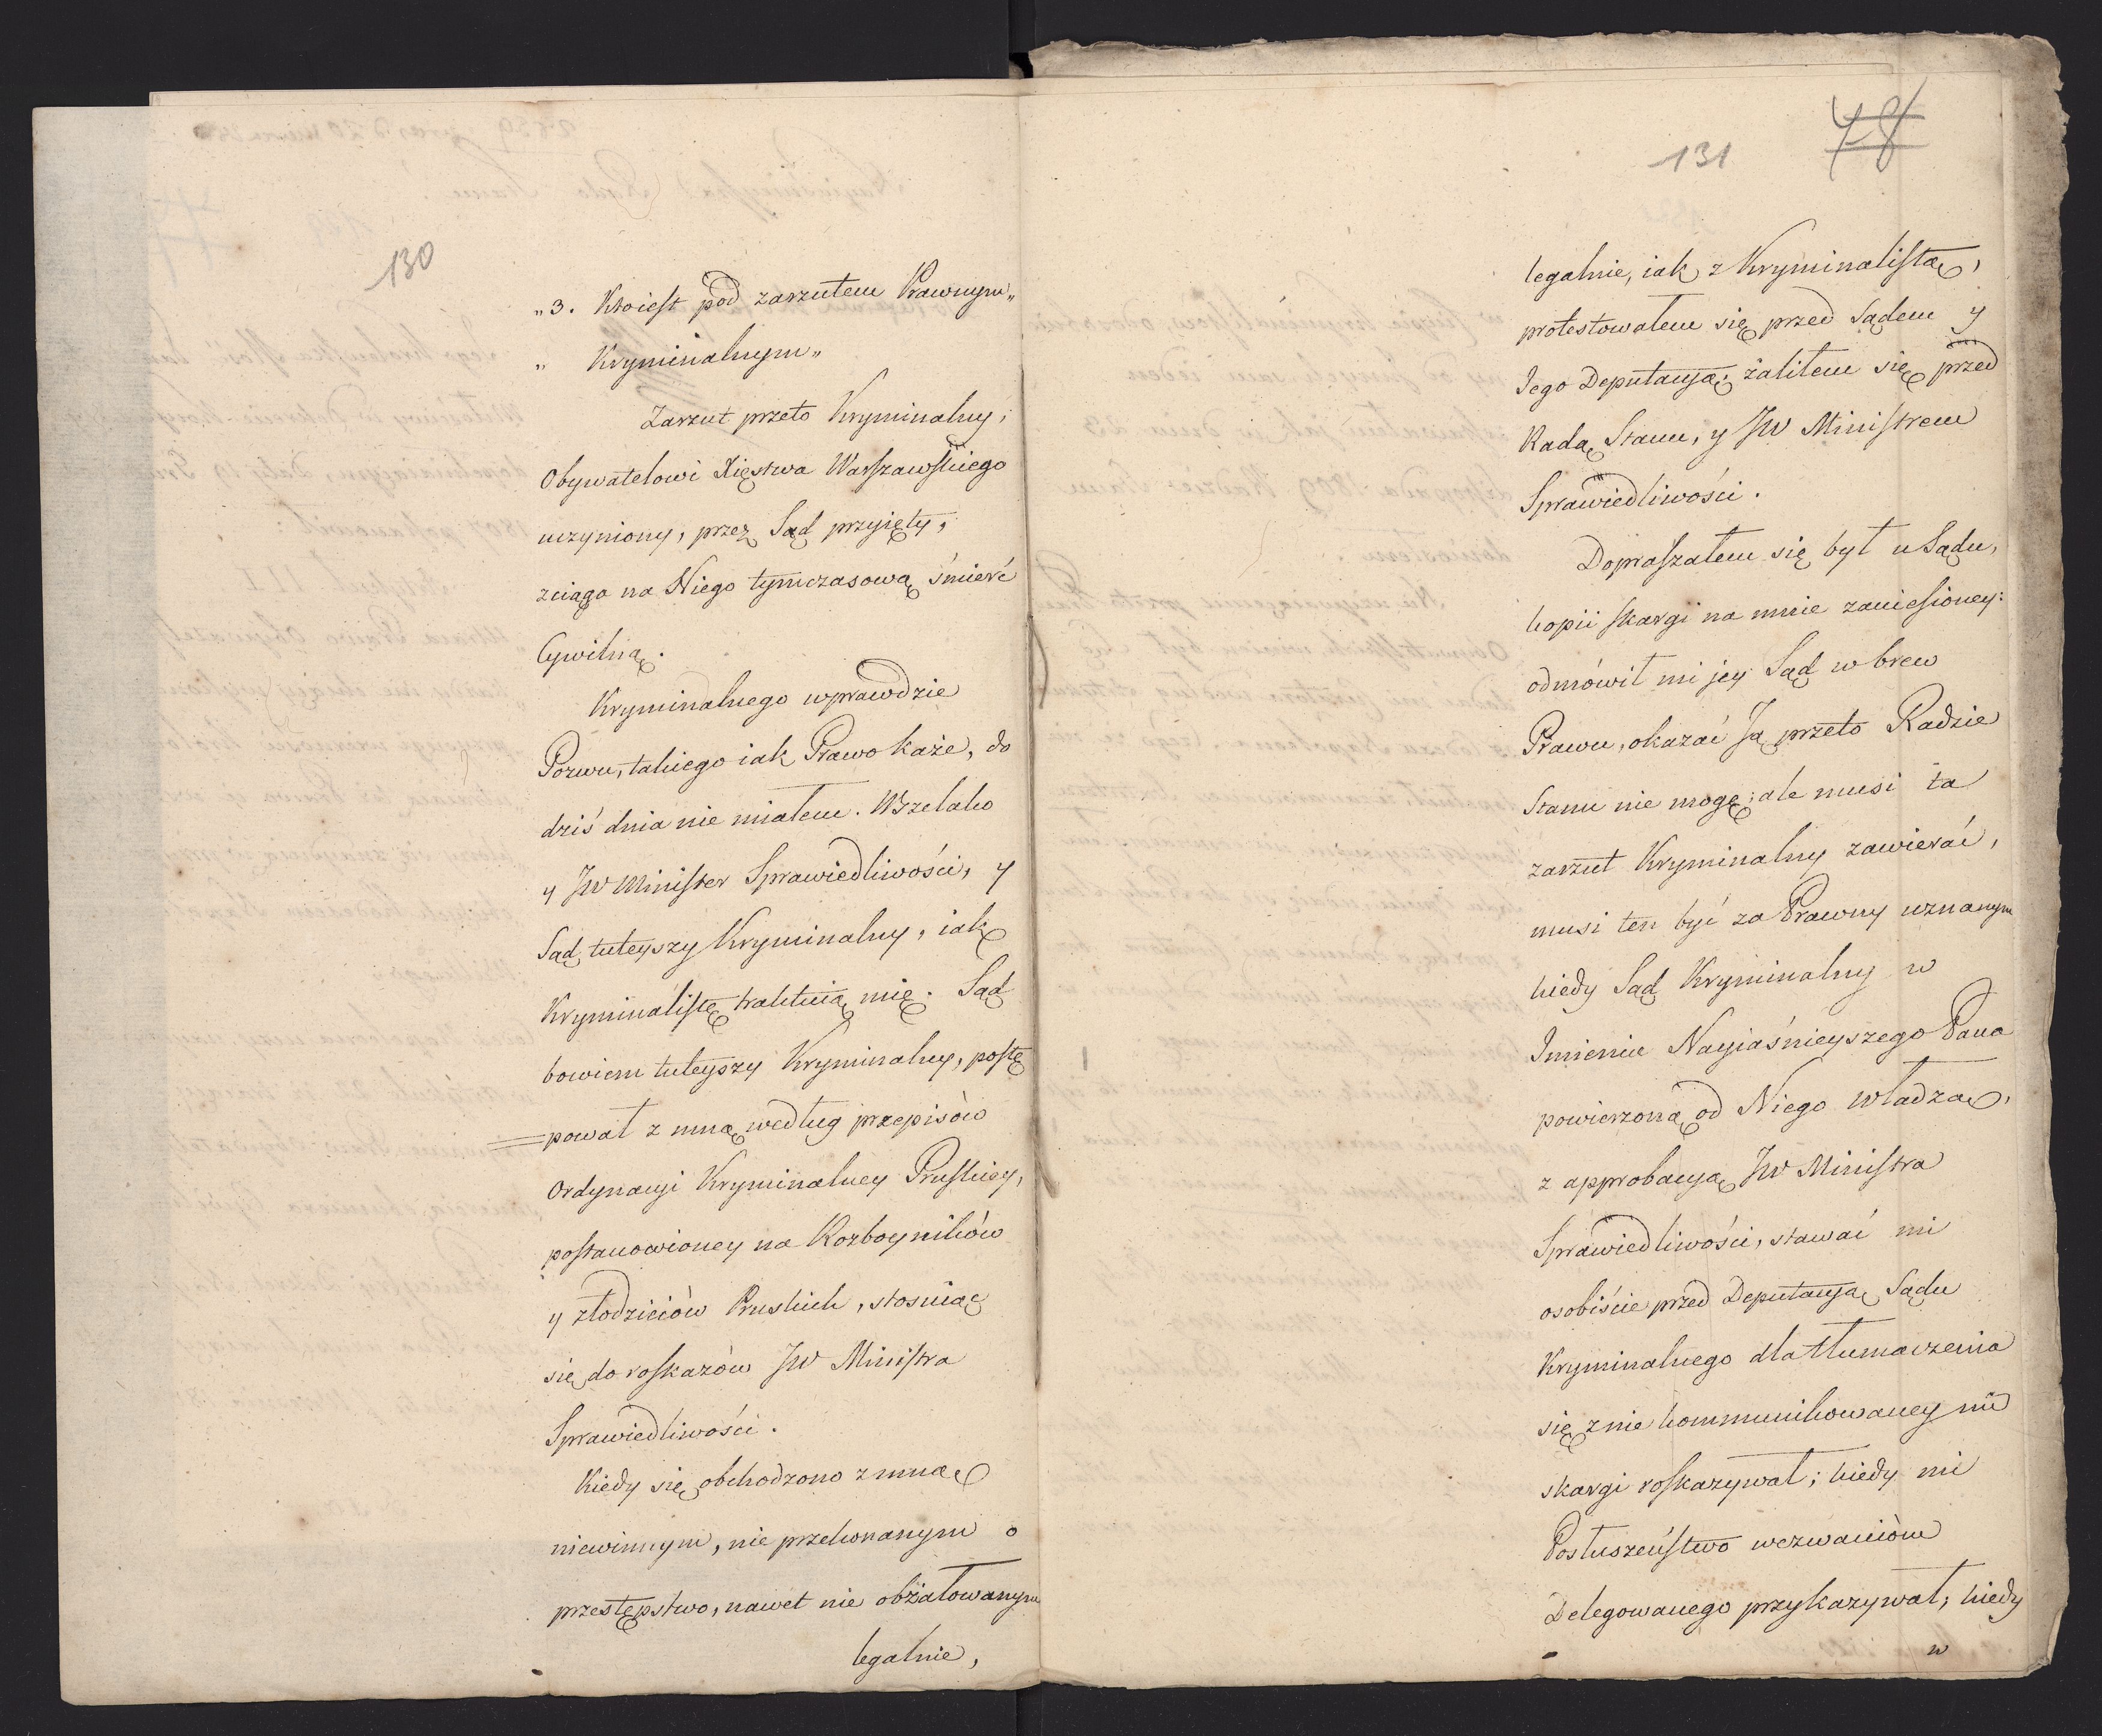 130
„3. Kto iest pod zarzutem Prawnym„
„ Kryminalnym„
Zarzut przeto Kryminalny,
Obywatelowi Xięstwa Warszawskiego
uczyniony, przez Sąd przyięty,
zciąga na Niego tymczasową śmierć
Cywilną.
Kryminalnego wprawdzie
Pozwu, takiego iak Prawo każe, do
dziś dnia nie miałem. Wszelako
y JW Minister Sprawiedliwości, y
Sąd tuteyszy Kryminalny, iak
Kryminalistę traktuią mię. Sąd
bowiem tuteyszy Kryminalny, postę
=pował z mną według przepisów
Ordynacyi Kryminalney Pruskiey,
postanowioney na Rozboyników
y złodzieiów Pruskich, stosuiąc
się do roskazów JW Ministra
Sprawiedliwości.
Kiedy się obchodzono z mną
niewinnym, nie przekonanym o
przestępstwo, nawet nie obżałowanym
legalnie,
131 78
legalnie, iak z Kryminalistą,
protestowałem się przed Sądem y
Jego Deputacyą; żaliłem się przed
Radą Stanu, y JW Ministrem
Sprawiedliwości.
Dopraszałem się był u Sądu,
kopii skargi na mnie zaniesioney:
odmówił mi jey Sąd wbrew
Prawu, okazać Ją przeto Radzie
Stanu nie mogę; ale musi ta
zarzut Kryminalny zawierać,
musi ten być za Prawny uznanym
kiedy Sąd Kryminalny w
Imieniu Nayiaśnieyszego Pana
powierzoną od Niego władzą,
z approbacyą JW Ministra
Sprawiedliwości, stawać mi
osobiście przed Deputacyą Sądu
Kryminalnego dla tłumaczenia
się z nie kommunikowaney mi
skargi roskazywał; kiedy mi
Posłuszeństwo wezwaniom
Delegowanego przykazywał; kiedy
w